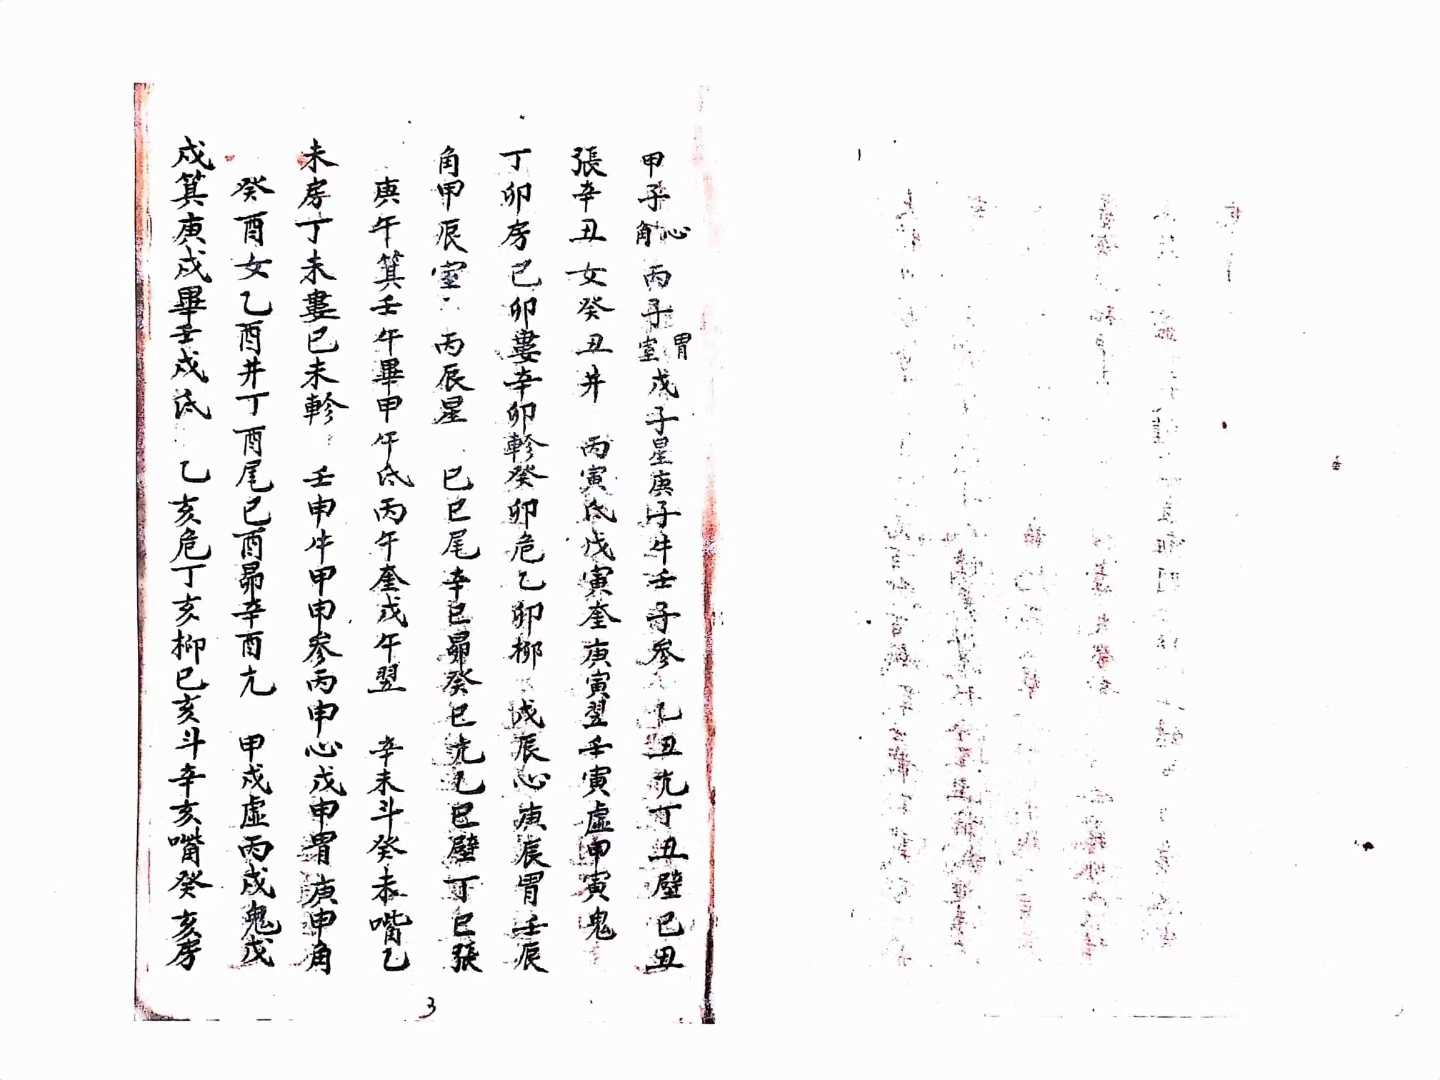 甲子角心丙子室胃戊子星庚子牛壬子参乙丑亢丁丑壁己丑
張辛丑女癸丑井丙寅氐戊寅奎庚寅翌壬寅虛甲寅鬼
丁卯房己卯婁辛卯軫癸卯危乙卯柳戊辰心庚辰胃壬辰
角甲辰室丙辰星己巳尾辛巳昴癸巳亢乙巳壁丁巳張
庚午箕壬午畢甲午氐丙午奎戊午翌辛未斗癸未嘴乙
未房丁未婁己未軫壬申牛甲申参丙申心戊申胃庚申角
癸酉女乙酉井丁酉尾己酉昴辛酉亢甲戌虛丙戌鬼戊
戌箕庚戌畢壬戌氐乙亥危丁亥柳己亥斗辛亥嘴癸亥房
3